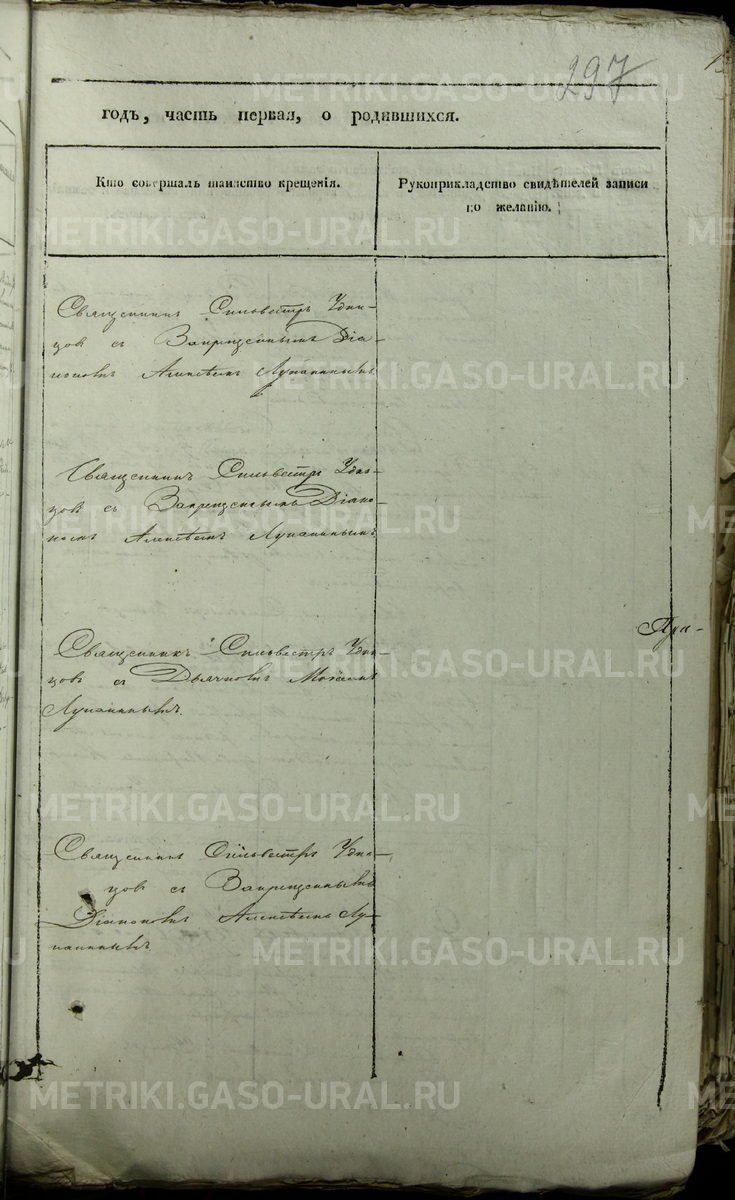 297
годъ, часть первая, о родившихся.
Кто совершалъ таинство крещенія.
Рукоприкладство свидѣтелей записи
по желанію.
Священникъ Сильвестръ Удин-
цовъ съ Запрещеннымъ Діа-
кономъ Алексѣемъ Лупаннымъ
Священникъ Сильвестръ Удин-
цовъ съ Запрещеннымъ Діако-
номъ Алексѣемъ Лупаннымъ
Священникъ Сильвестръ Удин-
цовъ съ Дьячкомъ
Лупаннымъ.
Священникъ Сильвестръ Удин-
цовъ съ Запрещеннымъ
Діакономъ Алексѣемъ Лу-
паннымъ.
METRIKI.GASO-URAL.RU